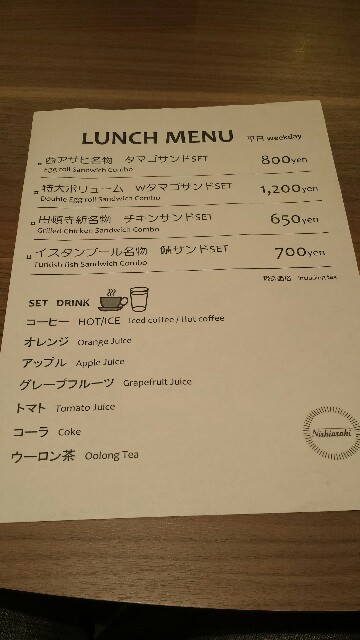 LUNCH MENU 平日 weekday
西アサヒ名物 タマゴサンドSET 800yen
Egg roll Sandwich Combo
特大ボリューム WタマゴサンドSET 1,200yen
Double Egg roll Sandwich Combo
円頓寺新名物 チキンサンドSET 650yen
Grilled Chicken Sandwich Combo
イスタンブール名物 鯖サンドSET 700yen
Turkish fish Sandwich Combo
税込価格 including tax
SET DRINK
コーヒー HOT/ICE Iced coffee / Hot coffee
オレンジ Orange Juice
アップル Apple Juice
グレープフルーツ Grapefruit Juice
トマト Tomato Juice
コーラ Coke
ウーロン茶 Oolong Tea
Nishiasahi